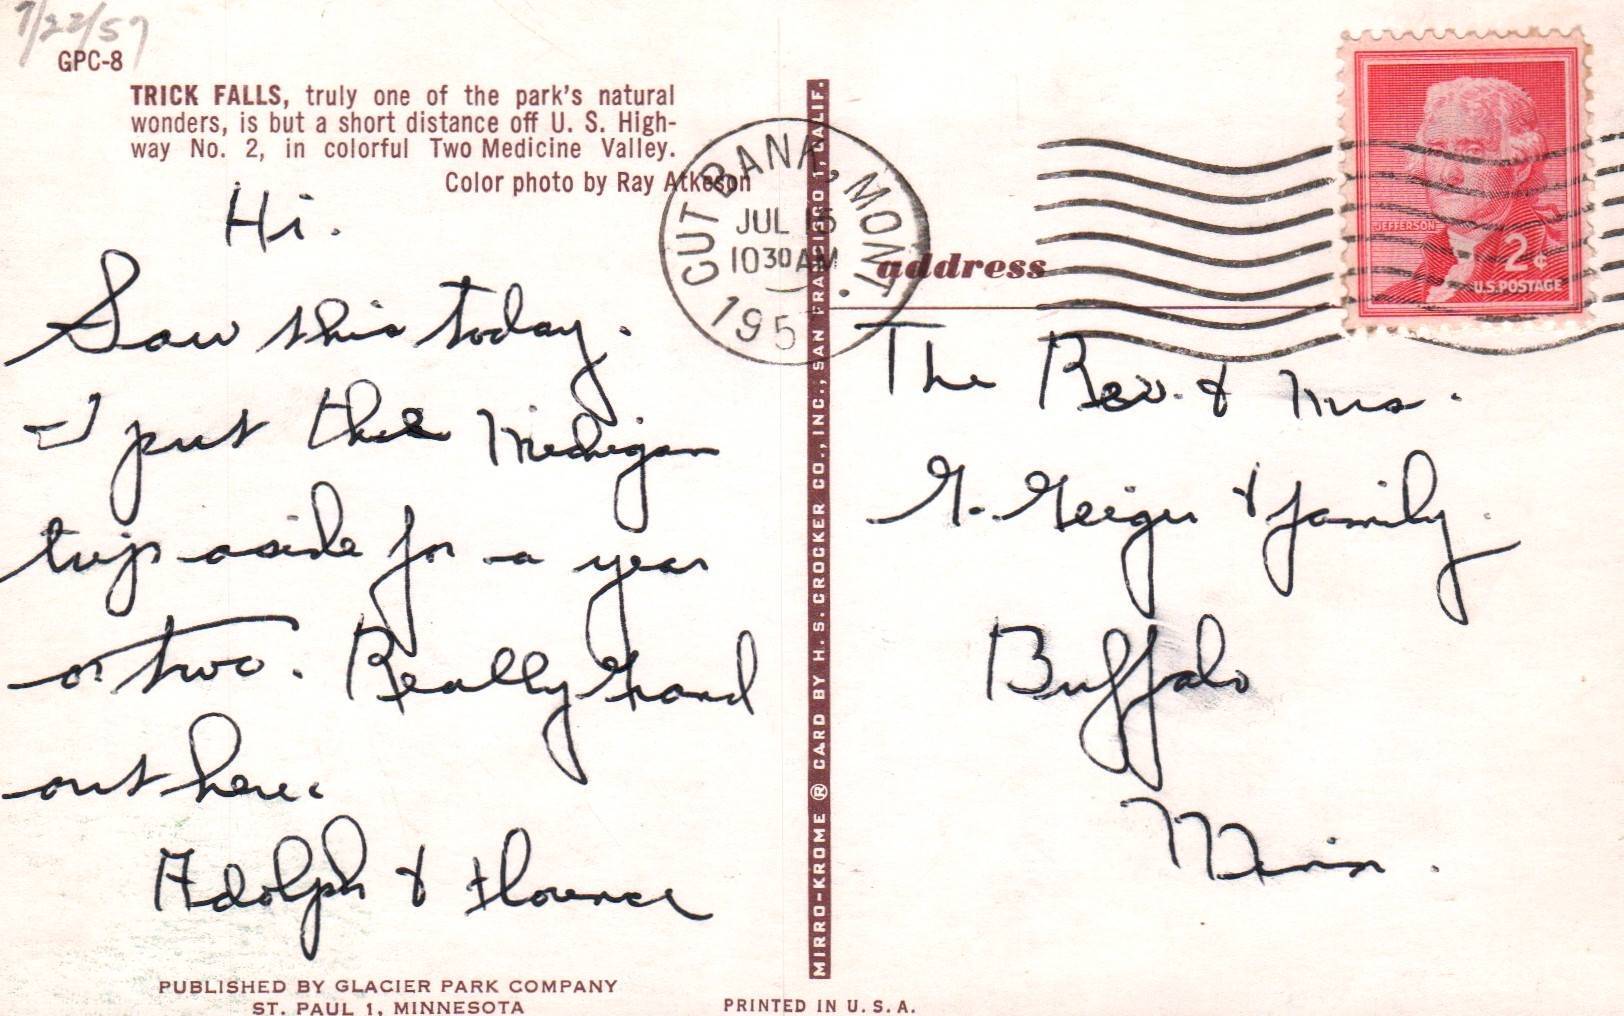 7/22/57
GPC-8
TRICK FALLS, truly one of the park's natural
wonders, is but a short distance off U. S. High-
way No. 2, in colorful Two Medicine Valley.
Color photo by Ray Atkeson
Hi.
Saw this today.
I put the Michigan
trip aside for a year
or two. Really Grand
out here.
Adolph & Florence
PUBLISHED BY GLACIER PARK COMPANY
ST. PAUL 1, MINNESOTA
MIRRO-KROME ® CARD BY H. S. CROCKER CO., INC., SAN FRANCISCO 1, CALIF.
PRINTED IN U. S. A.
CUT BANK, MONT.
JUL 15
10 30 AM
195
JEFFERSON
2¢
U.S. POSTAGE
address
The Rev. & Mrs.
G. Geiger & family.
Buffalo
Minn.